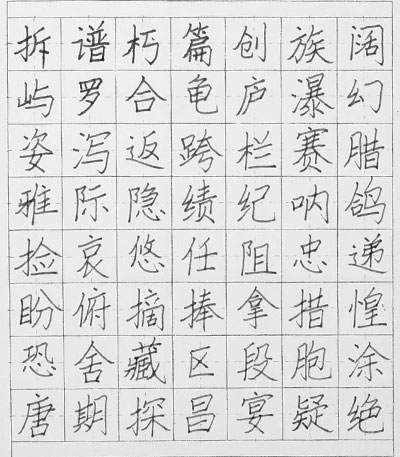 拆谱朽篇创族阔
屿罗合龟庐瀑幻
姿泻返跨栏赛腊
雅际隐绩纪呐鸽
捡哀悠任阻忠递
盼俯摘捧拿措惶
恐舍藏区段胞涂
唐期探昌宴疑绝